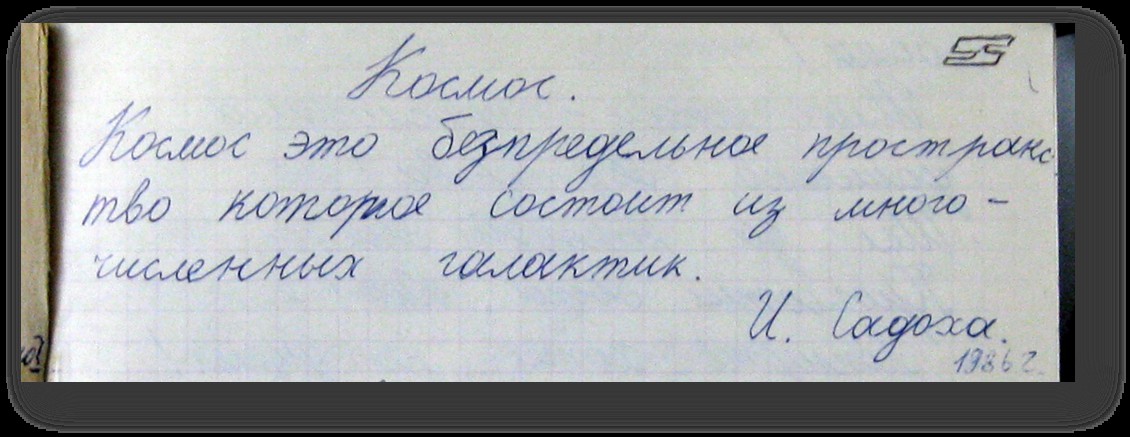 55
Космос.
Космос это безпредельное пространс
тво которое состоит из много-
численных галактик.
И. Садоха.
1986 г.